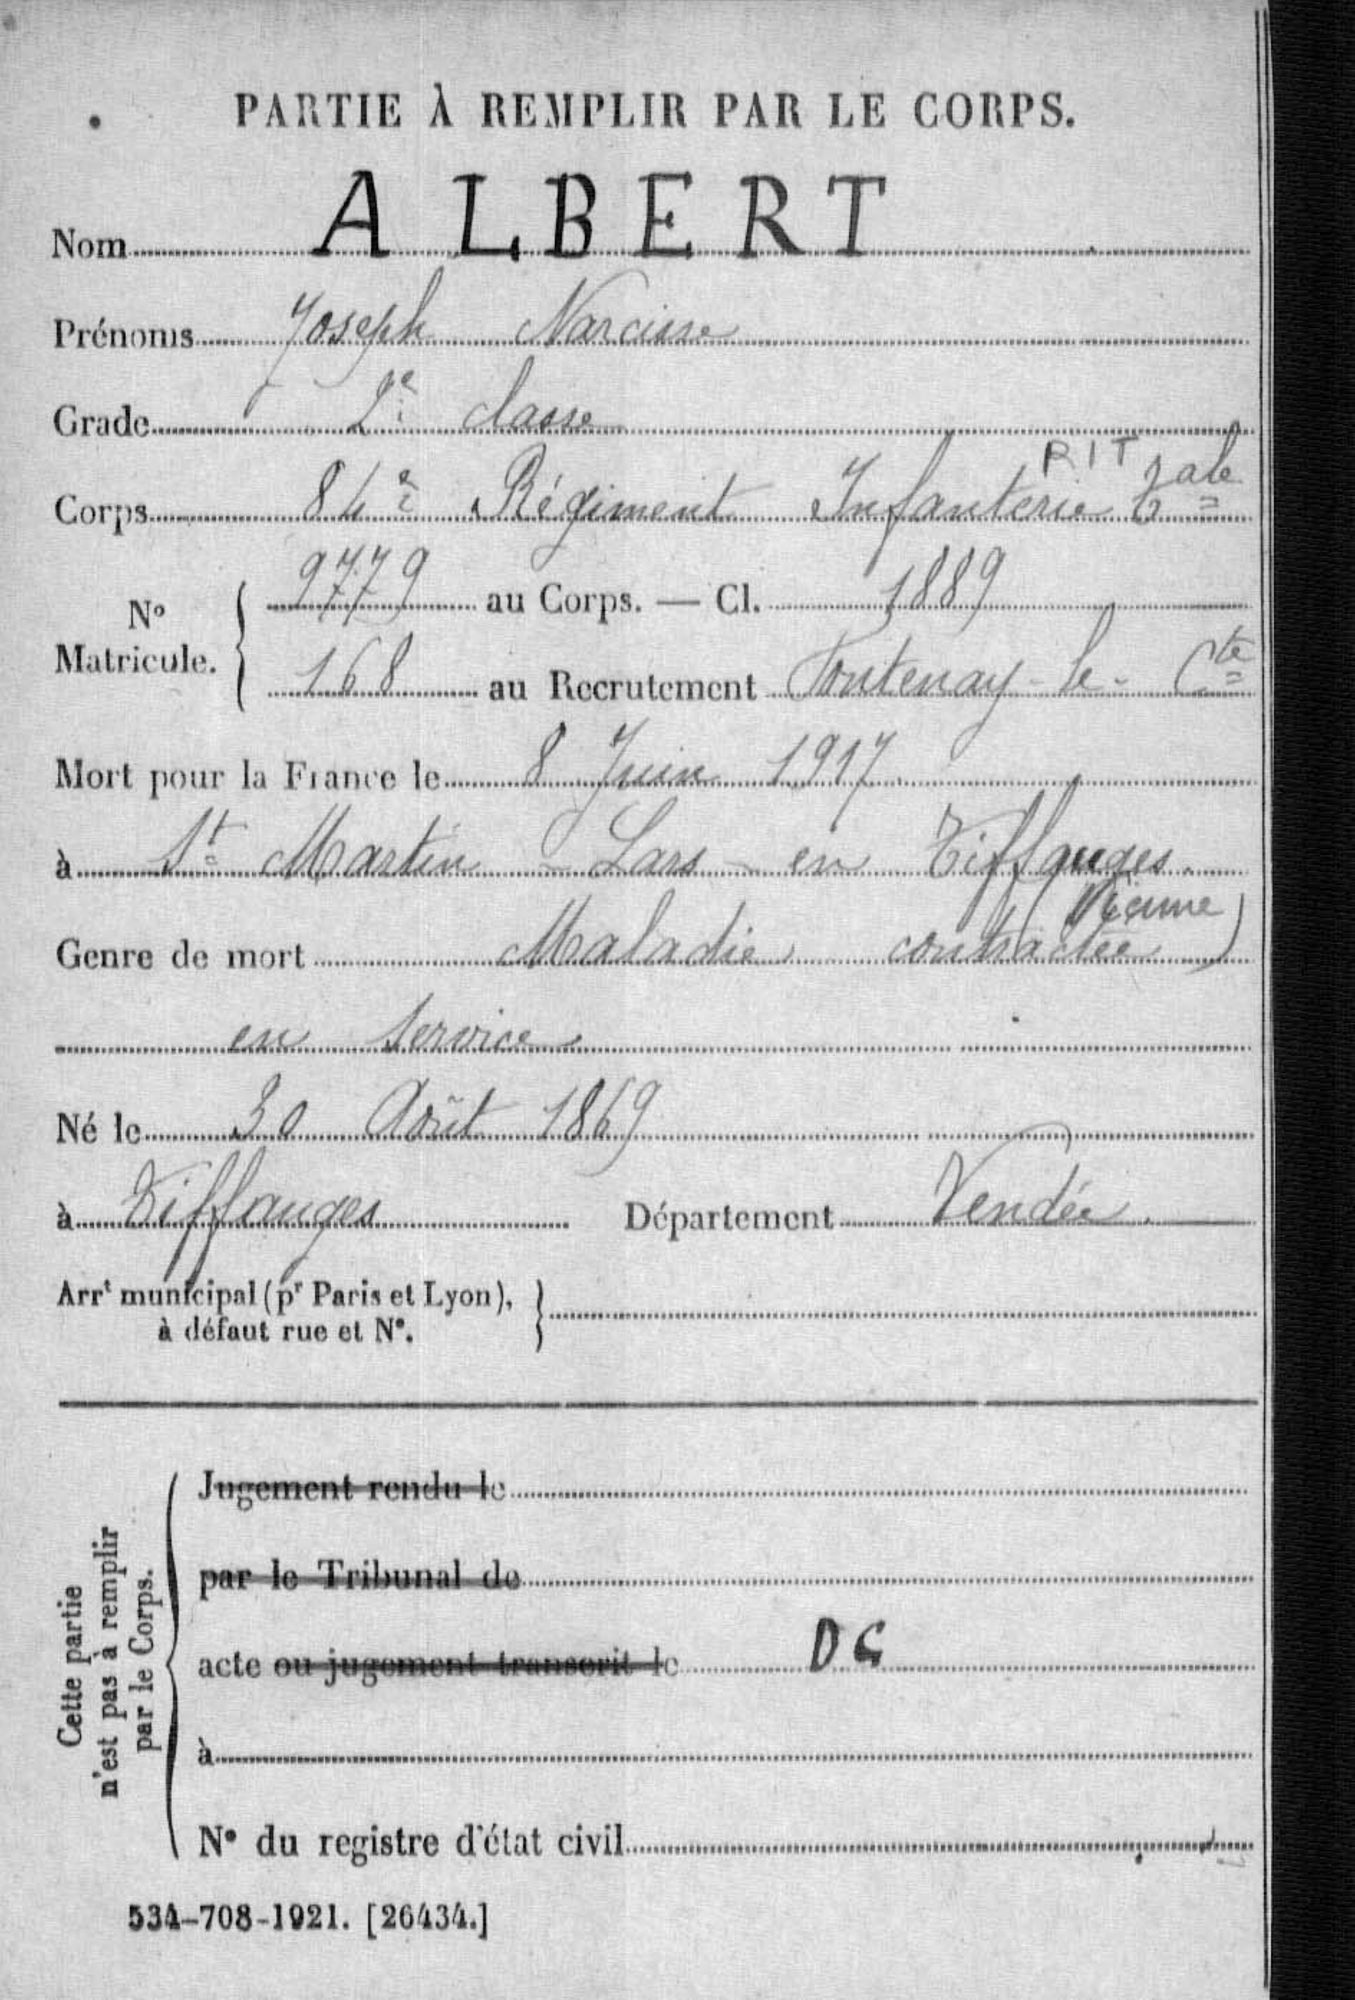 PARTIE À REMPLIR PAR LE CORPS.
Nom ALBERT
Prénoms Joseph Narcisse
Grade 2e classe
RIT
Corps 84e Régiment Infanterie Tale
No Matricule. { 9779 au Corps. — Cl. 1889
168 au Recrutement Fontenay-le-Cte
Mort pour la France le 8 Juin 1917
à St Martin-Lars-en Tiffauges
Genre de mort Maladie contractée
en service
Né le 30 Août 1869
à Tiffauges Département Vendée.
Arrt municipal (pr Paris et Lyon), }
à défaut rue et No.
Cette partie
n'est pas à remplir
par le Corps.
Jugement rendu le
par le Tribunal de
acte ou jugement transcrit le DG
à
No du registre d'état civil
534-708-1921. [26434.]